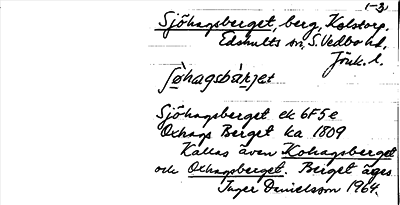 1-2
Sjöhagsberget, berg, Kolstorp,
Edshults sn, S. Vedbo hd,
Jönk. l.
Sjöhagsberget ek 6F5e
Oxhags Berget ka 1809
Kallas även Kohagsberget
och Oxhagsberget. Berget äges
Inger Danielsson 1964.